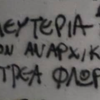 ΛΕΥΤΕΡΙΑ
ΟΝ ΑΝΑΡΧΙΚ
ΤΡΕΑ ΦΛΩΡ